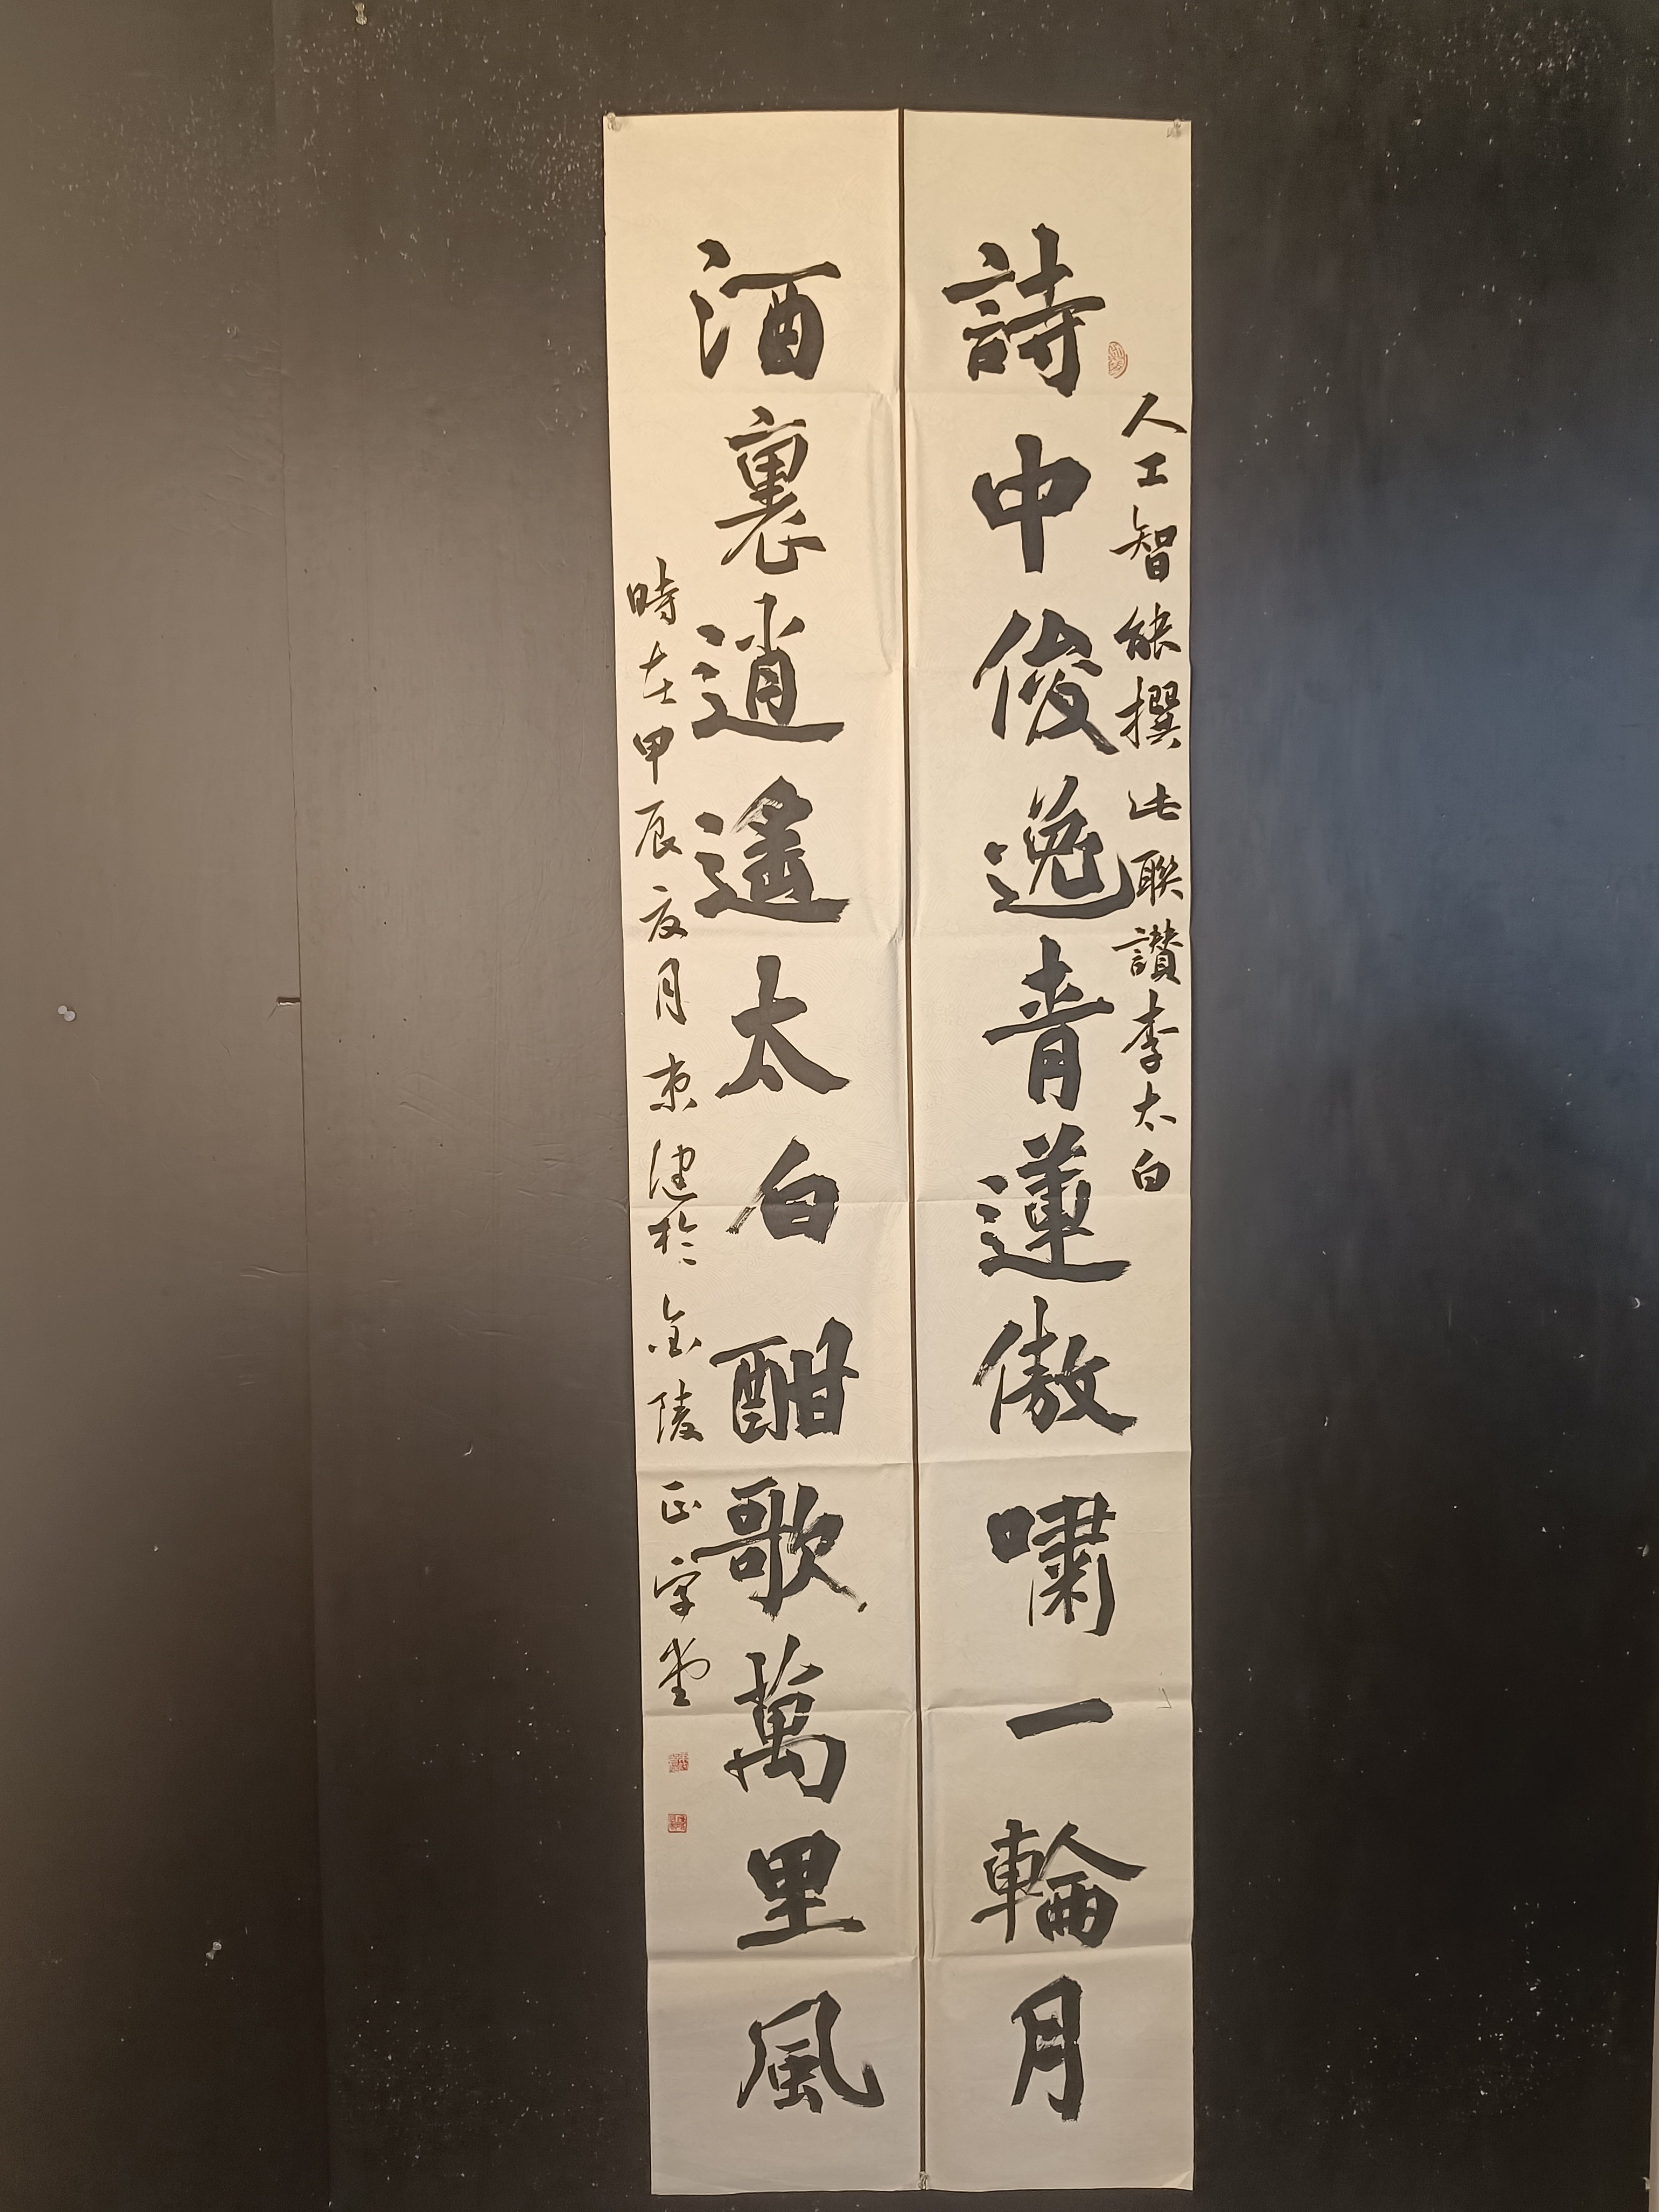 詩中俊逸青蓮傲嘯一輪月
人工智能撰此聯讚李太白
酒裏逍遙太白酣歌萬里風
時在甲辰夜月京建於金陵正字堂